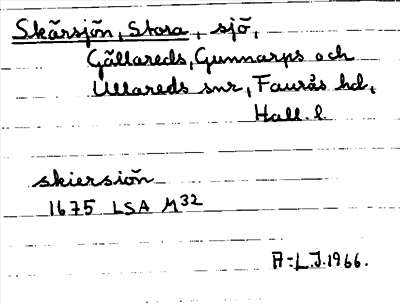 Skärsjön, Stora, sjö,
Gällareds, Gunnarps och
Ullareds snr, Faurås hd,
Hall. l.
skiersiön
1675 LSA M32
A:L.J.1966.